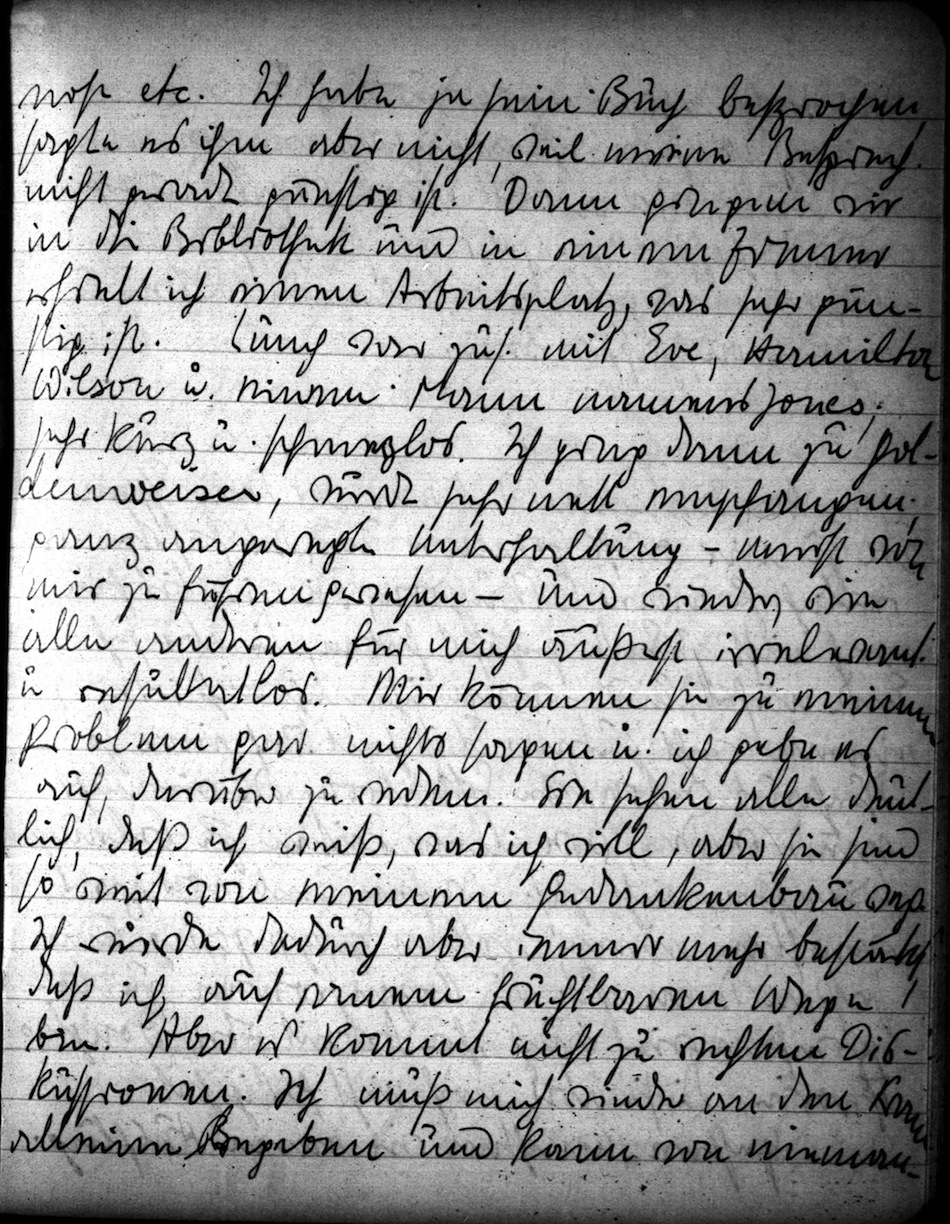 nose etc. Ich habe ja sein Buch besprochen
sagte es ihm aber nicht, weil meine Besprech.
nicht gerade günstig ist. Dann gingen wir
in die Bibliothek und in einem Zimmer
erhielt ich einen Arbeitsplatz, was sehr gün-
stig ist. Lunch war zus. mit Eve, Hamilton
Wilson u. einem Mann namens Jones;
sehr kurz u. schmerzlos. Ich ging dann zu Gol-
denweiser, wurde sehr nett empfangen;
ganz angeregte Unterhaltung – meist von
mir zu führen gewesen – und wieder wie
alle anderen für mich äußerst irrelevant
u resultatlos. Mir können sie zu meinem
Problem gar nichts sagen u. ich gebe es
auf, darüber zu reden. Sie sehen alle deut-
lich, daß ich weiß, was ich will, aber sie sind
so weit von meinem Gedankenbau weg.
Ich werde dadurch aber immer mehr bestärkt
daß ich auf einem fruchtbaren Wege
bin. Aber es kommt nicht zu rechten Dis-
kussionen. Ich muß mich wieder an den
allein begeben und kann von nieman-